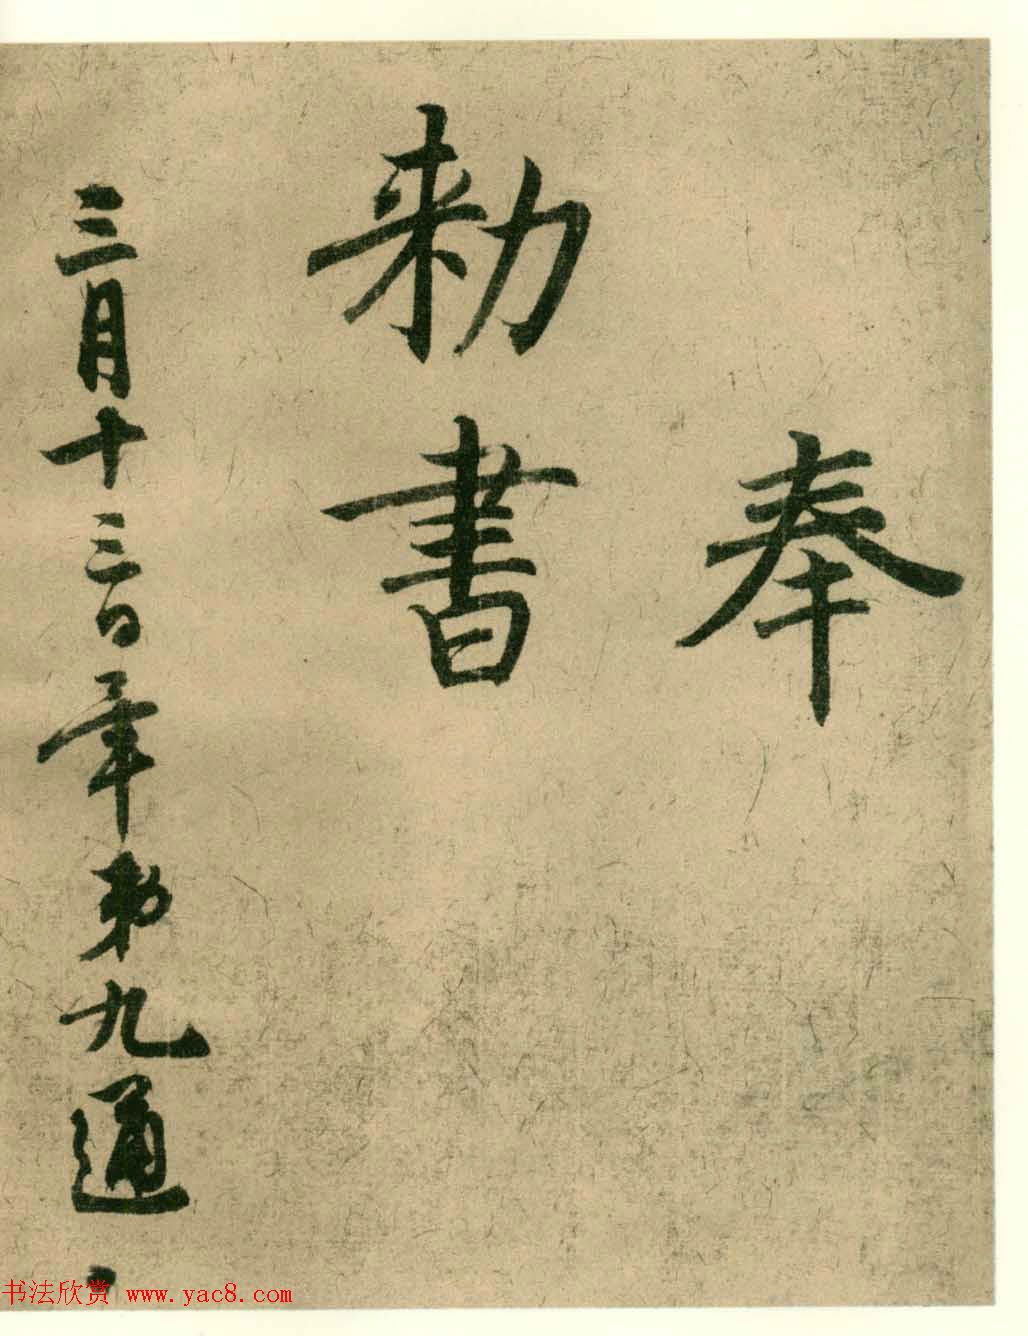 奉
勑書
三月十三日奉勑九通
书法欣赏 www.yac8.com